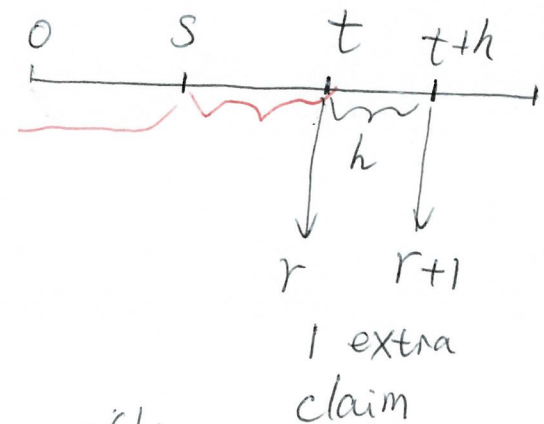 0 s t t+h
h
r r+1
1 extra
claim